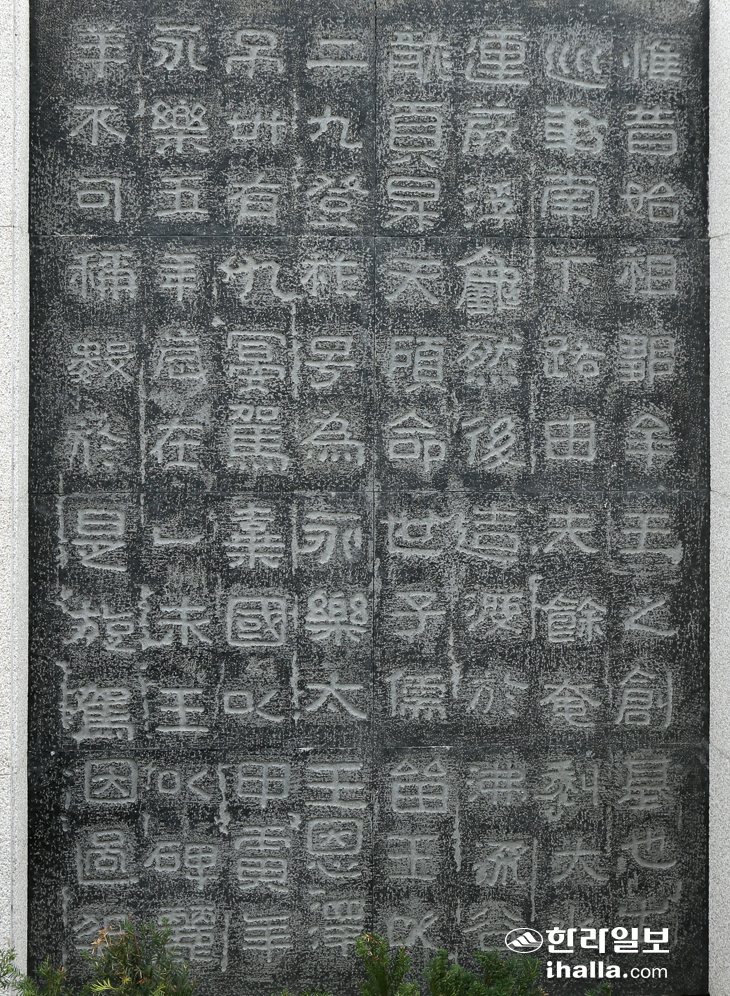 惟昔始祖鄒牟王之創基也
巡車南下路由夫餘奄利大
連葭浮龜然後造渡於沸流谷
龍頁昇天顧命世子儒留王以
二九登祚号為永樂太王恩澤
弔卅有九寔駕棄國以甲寅年
永樂五年歲在乙未王以碑麗
羊不可稱數於是旋駕因過
한라일보
ihalla.com